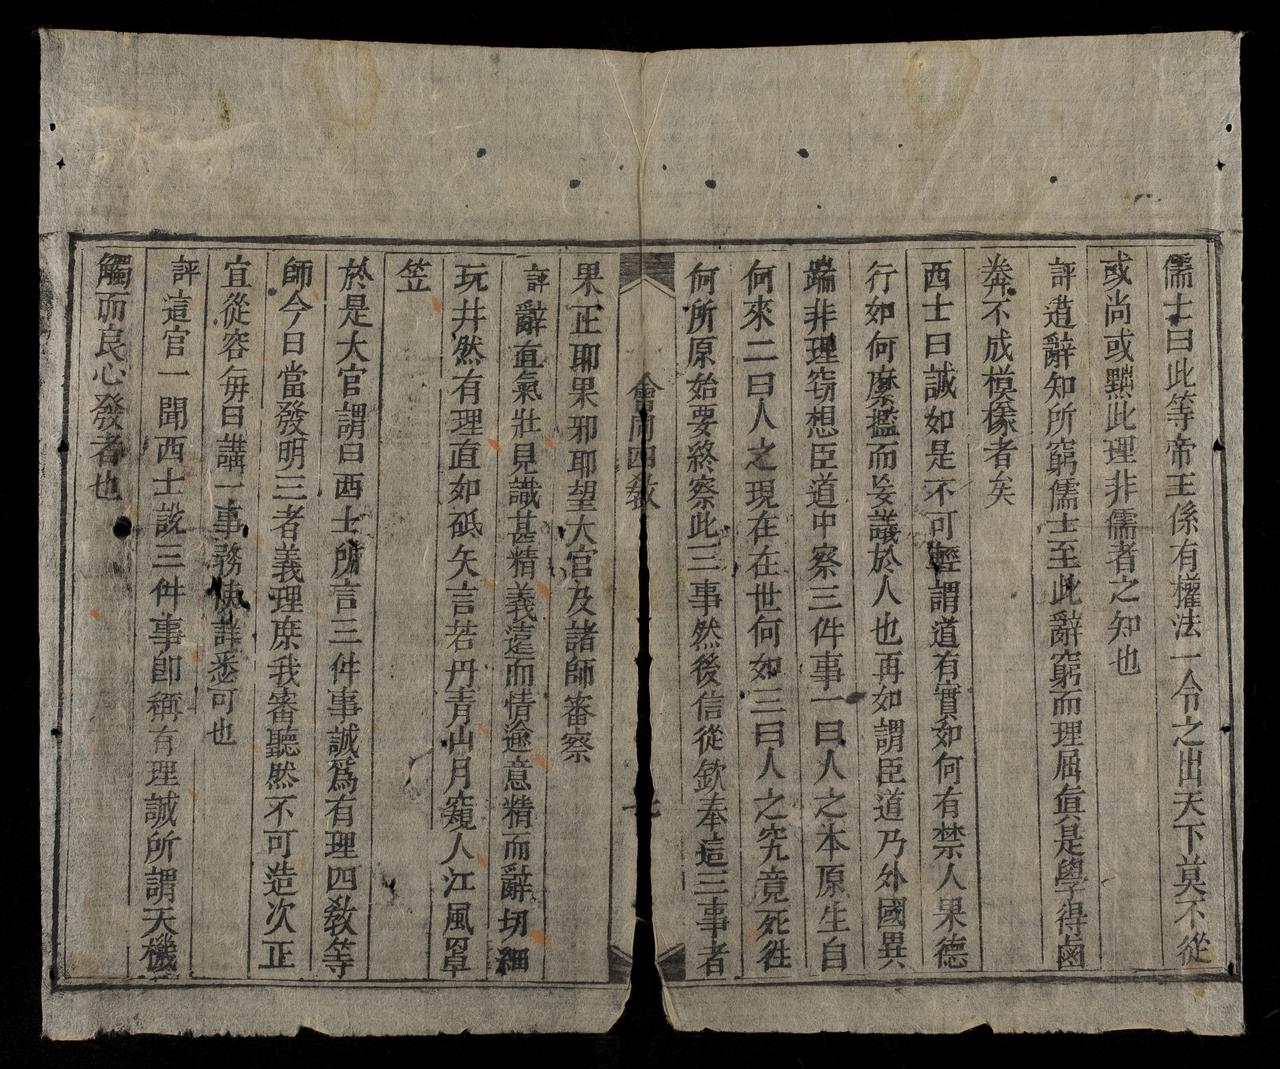 儒士曰此等帝王係有權法一令之出天下莫不從
或尚或黜此理非儒者之知也
評遁辭知所窮儒士至此辭窮而理屈眞是學得鹵
莾不成模㨾者矣
西士曰誠如是不可輕謂道有實如何有禁人果德
行如何縻㩜而妄議於人也再如謂臣道乃外國異
端非理窃想臣道中察三件事一曰人之本原生自
何來二曰人之現在在世何如三曰人之究竟死徃
何所原始要終察此三事然後信從欽奉這三事者
會同四教
七
果正耶果邪耶望大官及諸師審察
評辭直氣壯見識甚精義遠而情逾意精而辭切細
玩井然有理直如砥矢言若丹青山月窺人江風罩
笠
於是大官謂曰西士所言三件事誠爲有理四教等
師今日當發明三者義理庶我審聽然不可造次正
宜從容每日講一事務使詳悉可也
評這官一聞西士說三件事卽稱有理誠所謂天機
觸而良心發者也